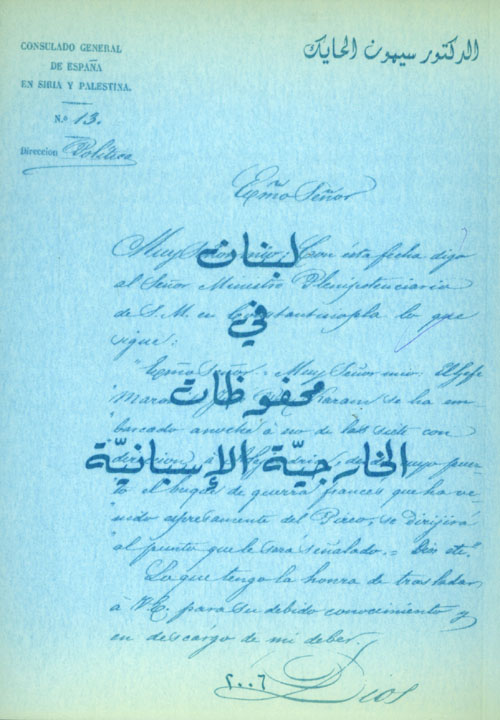 CONSULADO GENERAL
DE ESPAÑA
EN SIRIA Y PALESTINA.
N.º 13.
Direccion Politica
الدكتور سيمون الحايك
Exmo Señor
لبنان
في
محفوظات
الخارجيّة الإسبانيّة
Muy Señor mio: Con ésta fecha digo
al Señor Ministro Plenipotenciario
de S. M. en Constantinopla lo que
sigue:
"Exmo Señor: Muy Señor mio: El Gefe
Karam se ha em
barcado anoche á
con
"to el buque de guerra frances que ha ve
"nido espresamente del Pireo, se dirijirá
"al punto que le será señalado.= Dios etc."
Lo que tengo la honra de trasladar
á V.E. para su debido conocimiento y
en descargo de mi deber.
Dios
٢٠٠٦